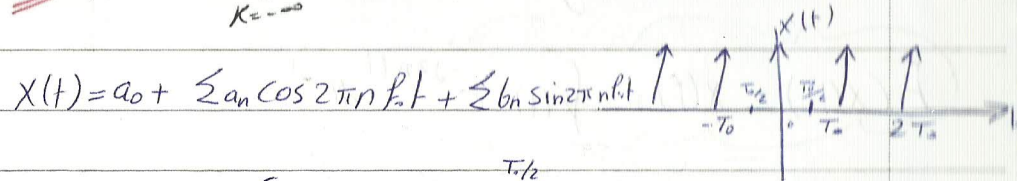 K=-∞
X(t)
X(t)=a₀+ Σaₙ cos2πn f₀t + Σbₙ sin2πnf₀t
T₀/2 T₀/2
-T₀ 0 T₀ 2T₀
T₀/2